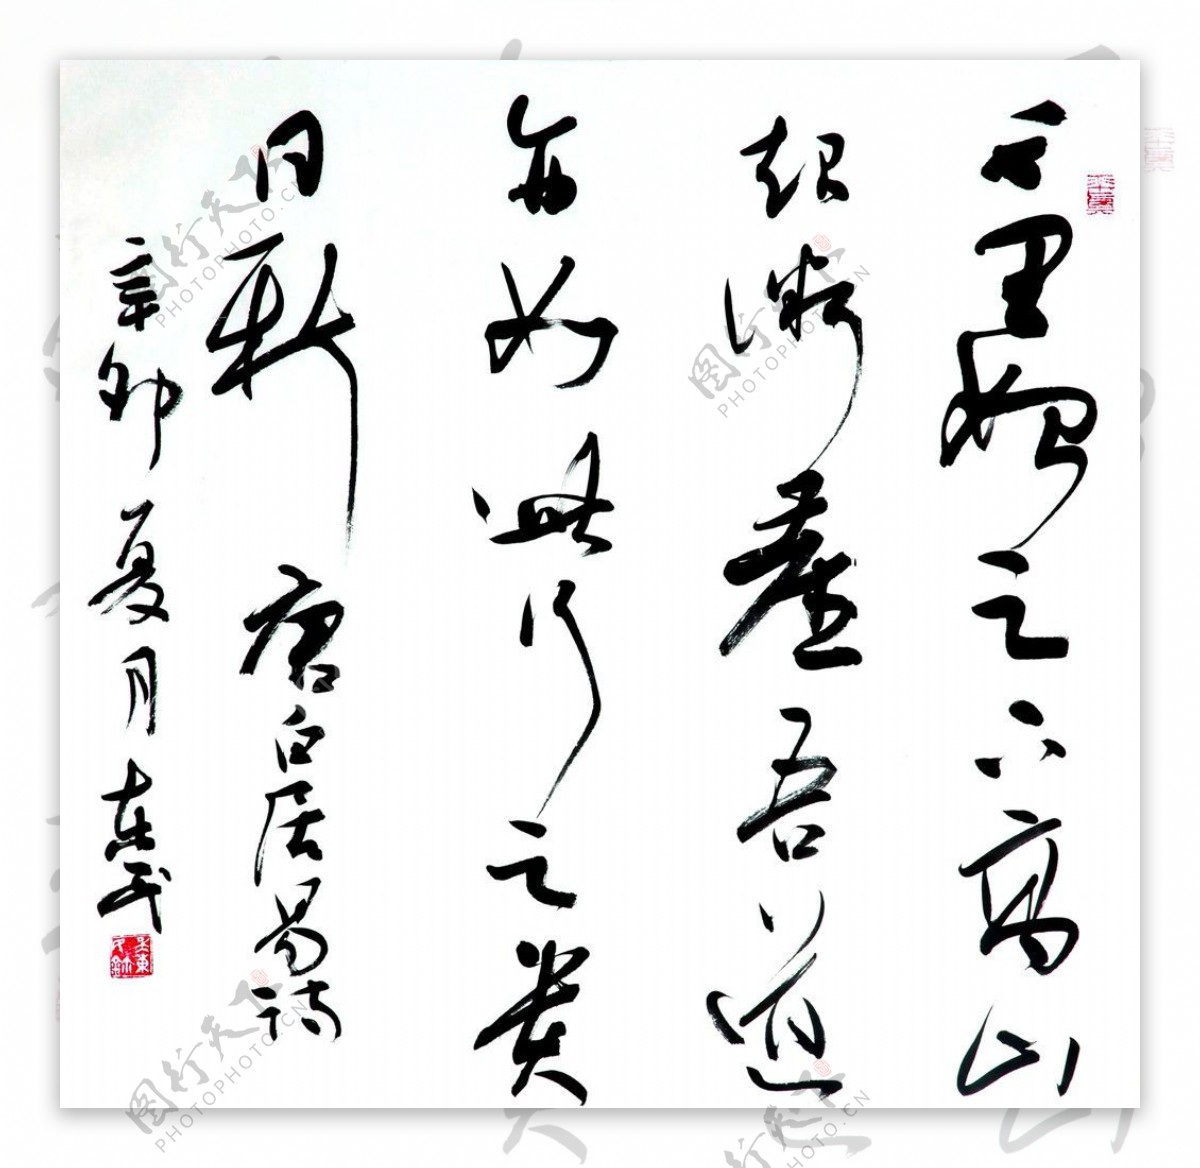 千里始足下高山
起微塵吾道
亦如此行之貴
日新 唐白居易詩
辛卯夏月
图行天下
PHOTOPHOTO.CN